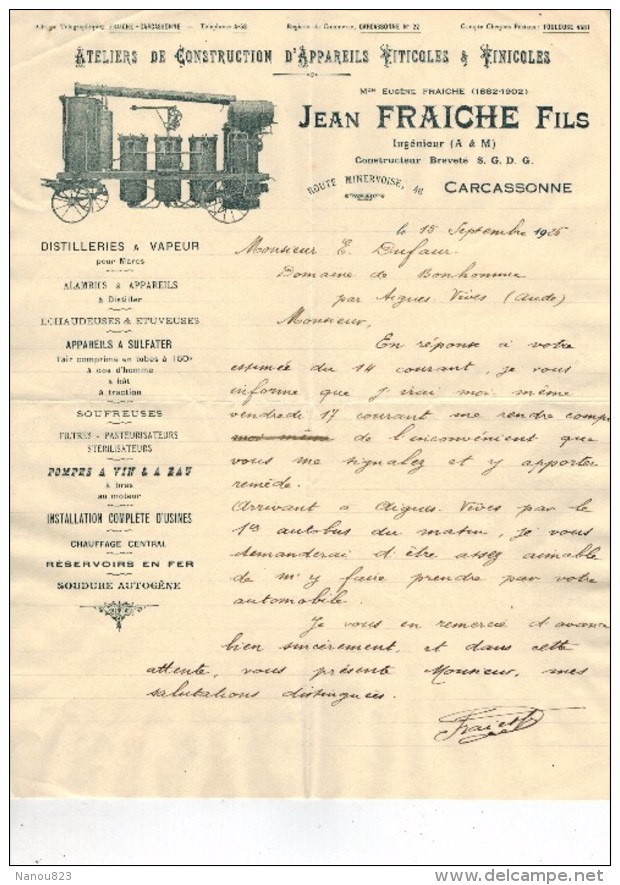 Adresse Télégraphique: FRAICHE - CARCASSONNE — Téléphone 4-50
Registre du Commerce, CARCASSONNE N° 22
Compte Chèques Postaux: TOULOUSE 4581
ATELIERS DE CONSTRUCTION D'APPAREILS VITICOLES & VINICOLES
Mon EUGÈNE FRAICHE (1882-1902)
JEAN FRAICHE FILS
Ingénieur (A & M)
Constructeur Breveté S. G. D. G.
ROUTE MINERVOISE, 46
CARCASSONNE
DISTILLERIES A VAPEUR
pour Marcs
ALAMBICS & APPAREILS
à Distiller
ECHAUDEUSES & ETUVEUSES
APPAREILS A SULFATER
l'air comprimé en tubes à 150k
à dos d'homme
à bât
à traction
SOUFREUSES
FILTRES - PASTEURISATEURS
STÉRILISATEURS
POMPES A VIN & A EAU
à bras
au moteur
INSTALLATION COMPLÈTE D'USINES
CHAUFFAGE CENTRAL
RÉSERVOIRS EN FER
SOUDURE AUTOGÈNE
le 15 Septembre 1926
Monsieur E. Dufaur.
Domaine de Bonhomme
par Aigues. Vives (Aude)
Monsieur,
En réponse à votre
estimée du 14 courant, je vous
informe que j'irai moi même
vendredi 17 courant me rendre compte
moi même de l'inconvénient que
vous me signalez et y apporter
remède.
Arrivant à Aigues. Vives par le
1er autobus du matin, je vous
demanderai d'être assez aimable
de m'y faire prendre par votre
automobile.
Je vous en remercie d'avance
bien sincèrement, et dans cette
attente, vous présente Monsieur, mes
salutations distinguées.
Fraiche
Nanou823
www.delcampe.net